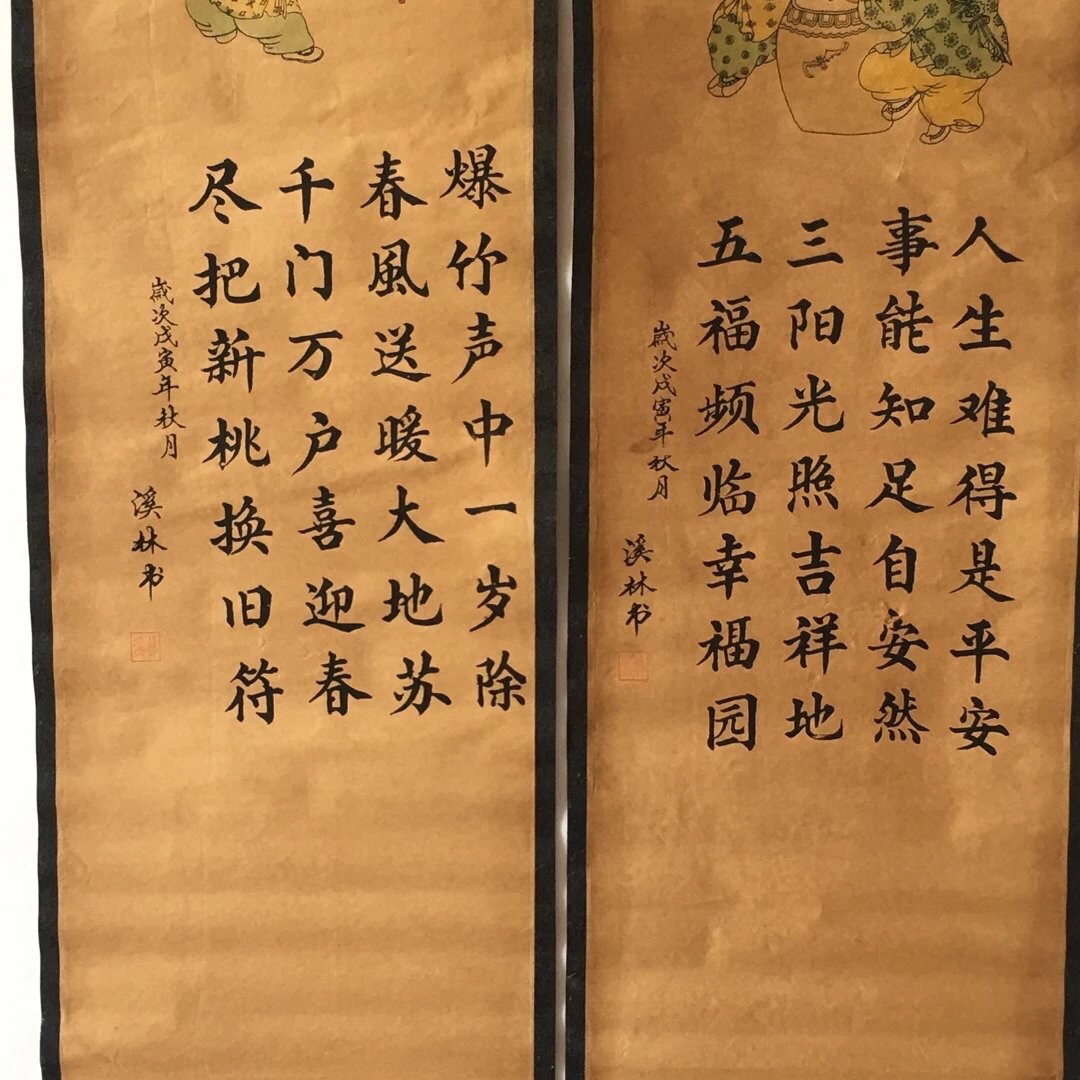 人生难得是平安
事能知足自安然
三阳光照吉祥地
五福频临幸福园
歲次戊寅年秋月
溪林书
爆竹声中一岁除
春風送暖大地苏
千门万户喜迎春
尽把新桃换旧符
歲次戊寅年秋月
溪林书